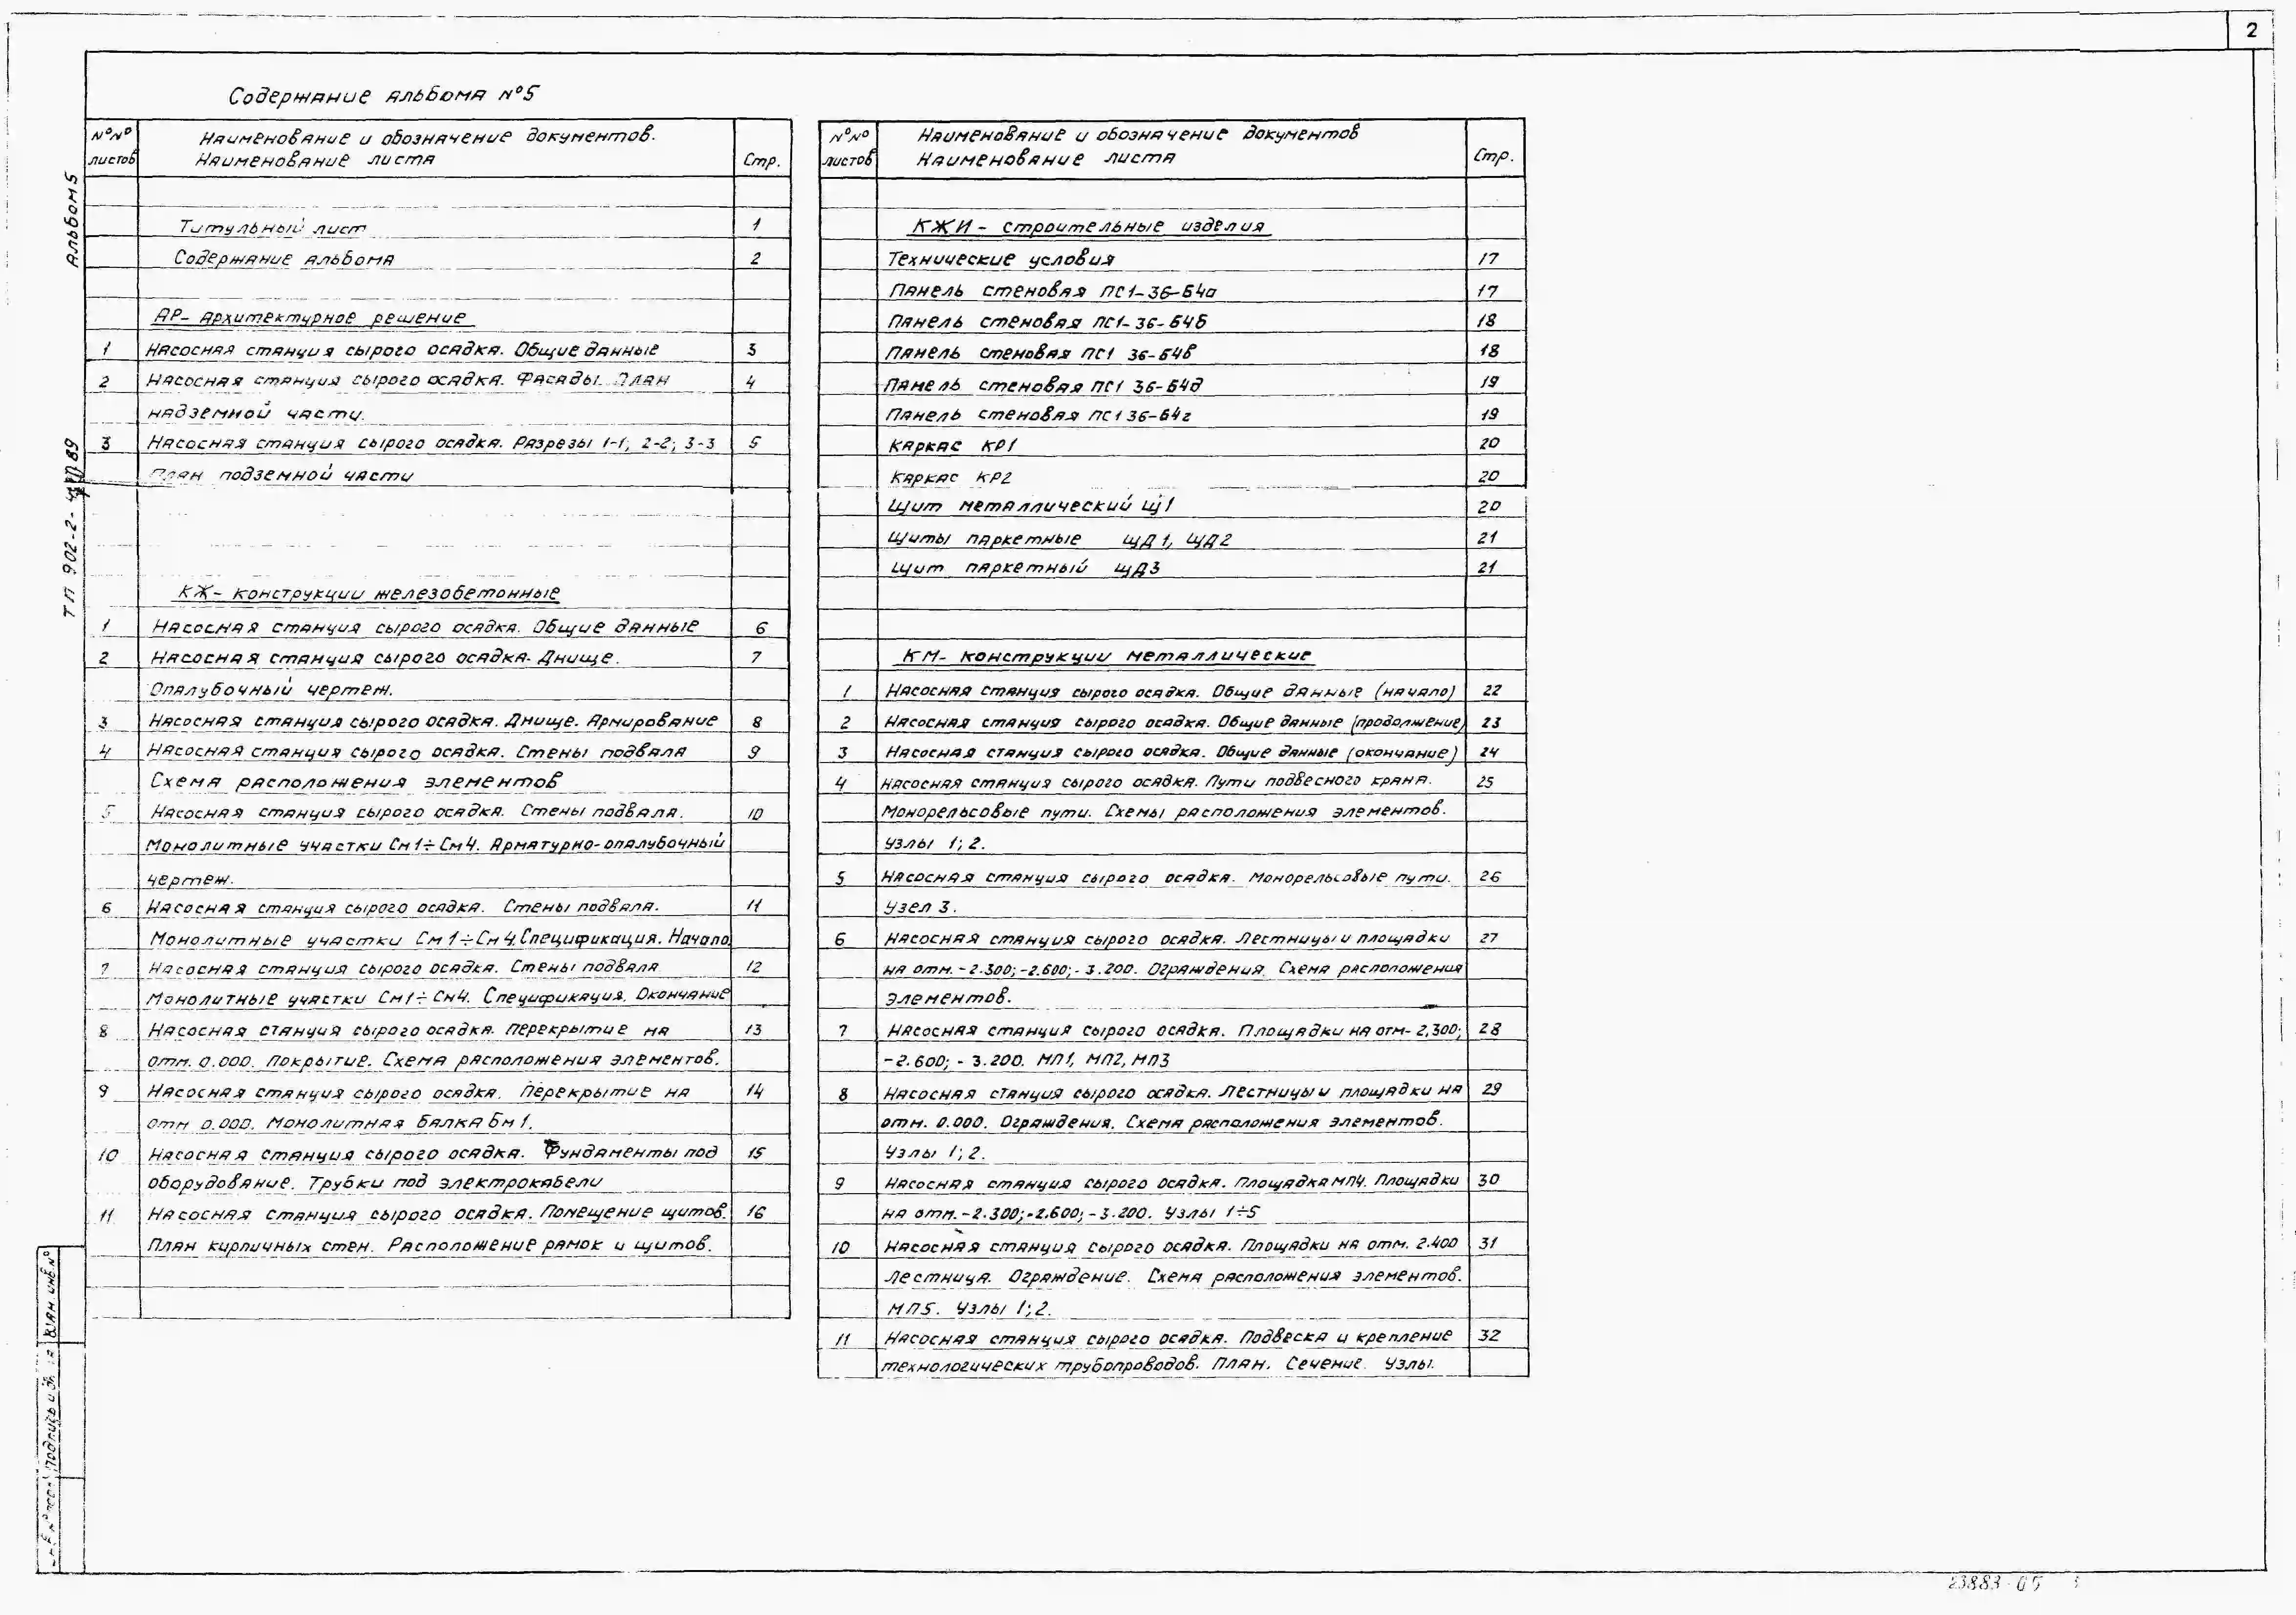 2
Содержание альбома №5
№№ листов
Наименование и обозначение документов.
Наименование листа
Стр.
Титульный лист 1
Содержание альбома 2
АР- Архитектурное решение
1 Насосная станция сырого осадка. Общие данные 3
2 Насосная станция сырого осадка. Фасады. План 4
надземной части.
3 Насосная станция сырого осадка. Разрезы 1-1; 2-2; 3-3 5
План подземной части
КЖ- конструкции железобетонные
1 Насосная станция сырого осадка. Общие данные 6
2 Насосная станция сырого осадка. Днище. 7
Опалубочный чертеж.
3 Насосная станция сырого осадка. Днище. Армирование 8
4 Насосная станция сырого осадка. Стены подвала 9
Схема расположения элементов
5 Насосная станция сырого осадка. Стены подвала. 10
Монолитные участки См1÷См4. Арматурно-опалубочный
чертеж.
6 Насосная станция сырого осадка. Стены подвала. 11
Монолитные участки См1÷См4. Спецификация. Начало.
7 Насосная станция сырого осадка. Стены подвала 12
Монолитные участки См1÷См4. Спецификация. Окончание
8 Насосная станция сырого осадка. Перекрытие на 13
отм. 0.000. Покрытие. Схема расположения элементов.
9 Насосная станция сырого осадка. Перекрытие на 14
отм 0.000. Монолитная балка Бм1.
10 Насосная станция сырого осадка. Фундаменты под 15
оборудование. Трубки под электрокабели
11 Насосная станция сырого осадка. Помещение щитов. 16
План кирпичных стен. Расположение рамок и щитов.
№№ листов
Наименование и обозначение документов
Наименование листа
Стр.
КЖИ- строительные изделия
Технические условия 17
Панель стеновая ПС1-36-Б4а 17
Панель стеновая ПС1-36-Б4б 18
Панель стеновая ПС1 36-Б4в 18
Панель стеновая ПС1 36-Б4д 19
Панель стеновая ПС1 36-Б4г 19
Каркас КР1 20
Каркас КР2 20
Щит металлический Щ1 20
Щиты паркетные ЩД1, ЩД2 21
Щит паркетный ЩД3 21
КМ- конструкции металлические
1 Насосная станция сырого осадка. Общие данные (начало) 22
2 Насосная станция сырого осадка. Общие данные (продолжение) 23
3 Насосная станция сырого осадка. Общие данные (окончание) 24
4 Насосная станция сырого осадка. Пути подвесного крана. 25
Монорельсовые пути. Схемы расположения элементов.
Узлы 1; 2.
5 Насосная станция сырого осадка. Монорельсовые пути. 26
Узел 3.
6 Насосная станция сырого осадка. Лестницы и площадки 27
на отм. -2.300; -2.600; -3.200. Ограждения. Схема расположения
элементов.
7 Насосная станция сырого осадка. Площадки на отм- 2,300; 28
-2.600; -3.200. МП1, МП2, МП3
8 Насосная станция сырого осадка. Лестницы и площадки на 29
отм. 0.000. Ограждения. Схема расположения элементов.
Узлы 1; 2.
9 Насосная станция сырого осадка. Площадка МП4. Площадки 30
на отм. -2.300; -2.600; -3.200. Узлы 1÷5
10 Насосная станция сырого осадка. Площадки на отм. 2.400 31
Лестница. Ограждение. Схема расположения элементов.
МП5. Узлы 1; 2.
11 Насосная станция сырого осадка. Подвеска и крепление 32
технологических трубопроводов. План. Сечение. Узлы.
Альбом 5
ТП 902-2- 89
Взам. инв.№
Подпись и
23883-05 3